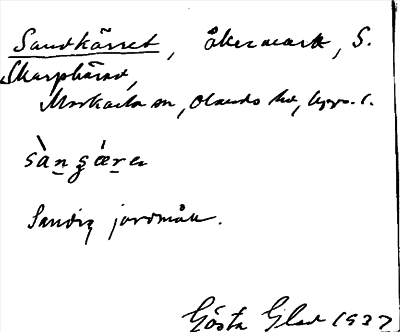 Sandkärret, åkermark, S.
Skarphärad,
Markarla sn, Olands hd, Upps. l.
sàngǽrer
Sandig jordmån.
Gösta Glad 1937